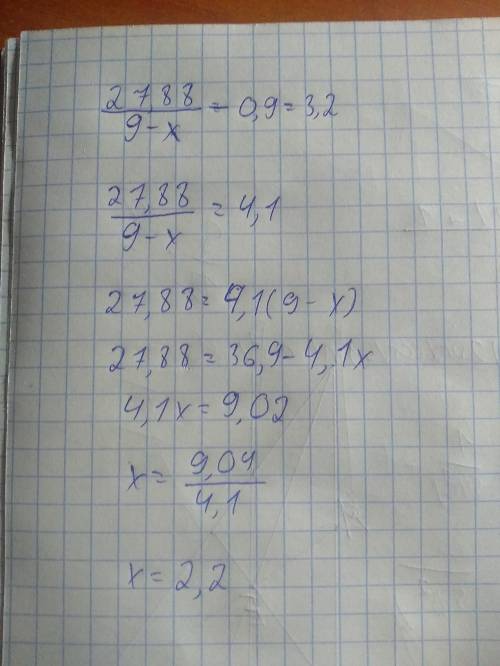 27,88/9-x - 0,9 = 3,2
27,88/9-x = 4,1
27,88 = 4,1(9-x)
27,88 = 36,9 - 4,1x
4,1x = 9,02
x = 9,04/4,1
x = 2,2